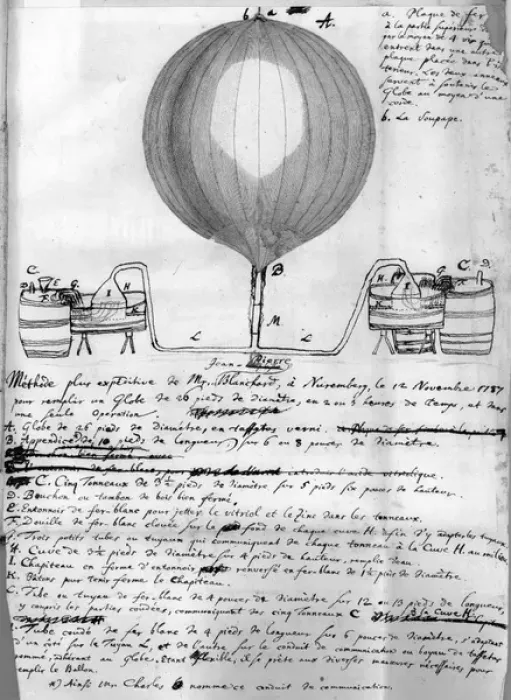 b a A.
a. Plaque de fer
à la partie supérieure du
par le moyen de 4 vis qui
entrent dans une autre
plaque placée dans l'in
terieur. Les deux anneaux
servent à soutenir le
Globe au moyen d'une
corde.
b. La Soupape.
C. D. E G. H I B. I H G. C. D.
M.
L L
Jean-Pierre
Méthode plus expéditive de Mr. Blanchard, à Nuremberg, le 12 Novembre 1787
pour remplir un Globe de 26 pieds de Diamètre, en 2 ou 3 heures de temps, et dans
une seule opération.
A. Globe de 26 pieds de diamètre, en taffetas verni.
B. Appendice de 10 pieds de longueur sur 6 ou 8 pouces de diamètre.
C. Cinq Tonneaux de 3½ pieds de diamètre sur 5 pieds six pouces de hauteur.
D. Bouchon ou tambon de bois bien fermé.
E. Entonnoir de fer-blanc pour jetter le vitriol et le zinc dans les tonneaux.
F. Douille de fer-blanc clouée sur le fond de chaque cuve H. afin d'y adapter les tuyaux.
Trois petits tubes ou tuyaux qui communiquent de chaque tonneau à la Cuve H. au milieu
H. Cuve de 3½ pieds de diamètre sur 4 pieds de hauteur, remplie d'eau.
I. Chapiteau en forme d'entonnoir renversé en fer-blanc de 1½ pied de diamètre.
K. Batons pour tenir ferme le Chapiteau.
Tube ou tuyau de fer-blanc de 4 pouces de diamètre sur 12 ou 13 pieds de longueur,
y compris les parties coudées, communiquant des cinq Tonneaux C à la Cuve H.
Tube coudé de fer blanc de 4 pieds de longueur sur 6 pouces de diamètre, s'adaptant
d'un côté sur le Tuyau L, et de l'autre sur le conduit de communication ou boyau de taffetas
gommé, adhérant au Globe; étant flexible, il se prête aux diverses manœuvres nécessaires pour
remplir le Ballon.
*) Ainsi Mr Charles nomme ce conduit de communication.